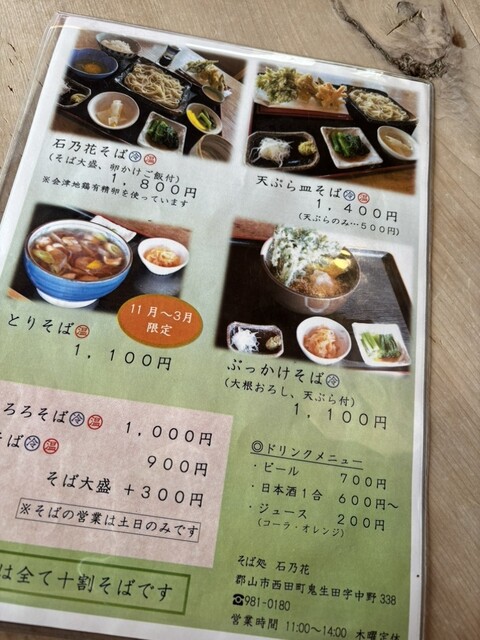 石乃花そば 冷 温
(そば大盛、卵かけご飯付)
1,800円
※会津地鶏有精卵を使っています
天ぷら皿そば 冷 温
1,400円
(天ぷらのみ…500円)
とりそば 温
11月～3月
限定
1,100円
ぶっかけそば 冷
(大根おろし、天ぷら付)
1,100円
ろろそば 冷 温
1,000円
そば 冷 温
900円
そば大盛 +300円
※そばの営業は土日のみです
は全て十割そばです
◎ドリンクメニュー
・ビール 700円
・日本酒1合 600円～
・ジュース 200円
(コーラ・オレンジ)
そば処 石乃花
郡山市西田町鬼生田字中野338
☎981-0180
営業時間 11:00～14:00 木曜定休